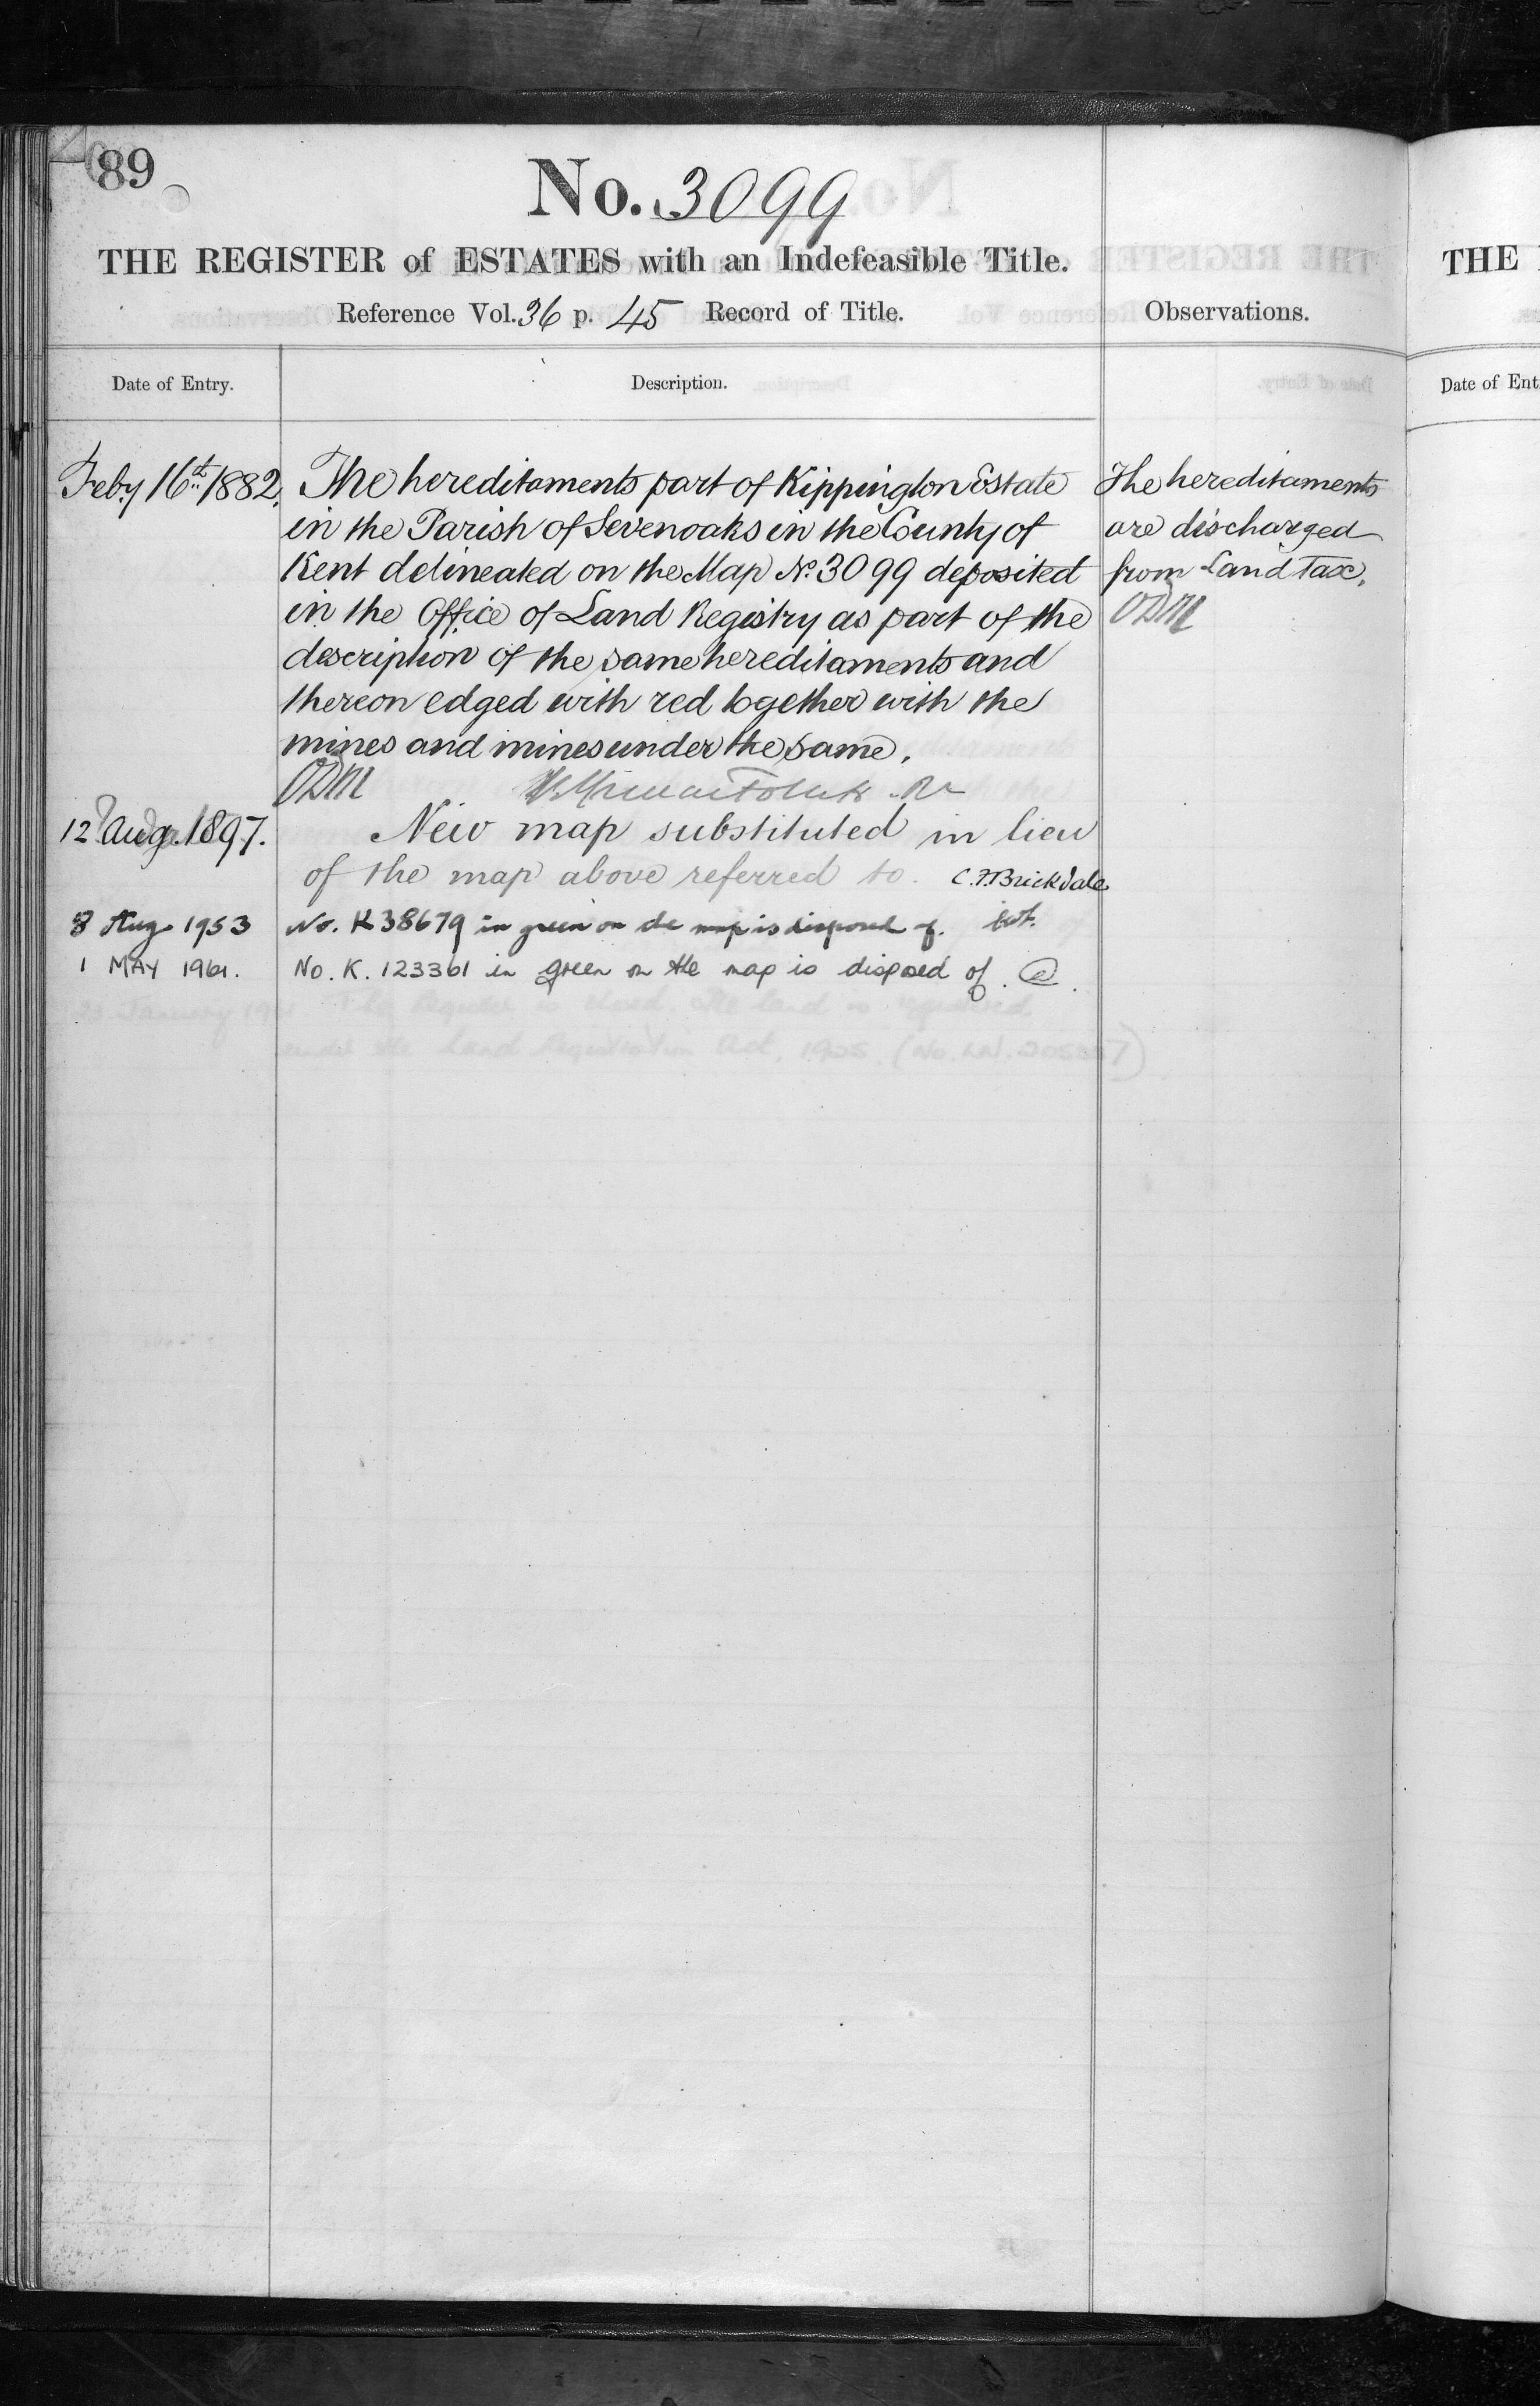 89
No. 3099
THE REGISTER of ESTATES with an Indefeasible Title.
Reference Vol. 36 p. 45 Record of Title.
Observations.
Date of Entry.
Description.
Feby 16th 1882.
The hereditaments part of Kippington Estate
in the Parish of Sevenoaks in the County of
Kent delineated on the Map No. 3099 deposited
in the Office of Land Registry as part of the
description of the same hereditaments and
thereon edged with red together with the
mines and mines under the same.
The hereditaments
are discharged
from Land Tax.
12 Aug. 1897.
New map substituted in lieu
of the map above referred to. C.F. Brickdale
8 Aug 1953
No. K38679 in green on the map is disposed of.
1 MAY 1961.
No. K. 123361 in green on the map is disposed of.
January
The Register is closed. The land is registered
under the Land Registration Act, 1925. (No.
THE
Date of Ent